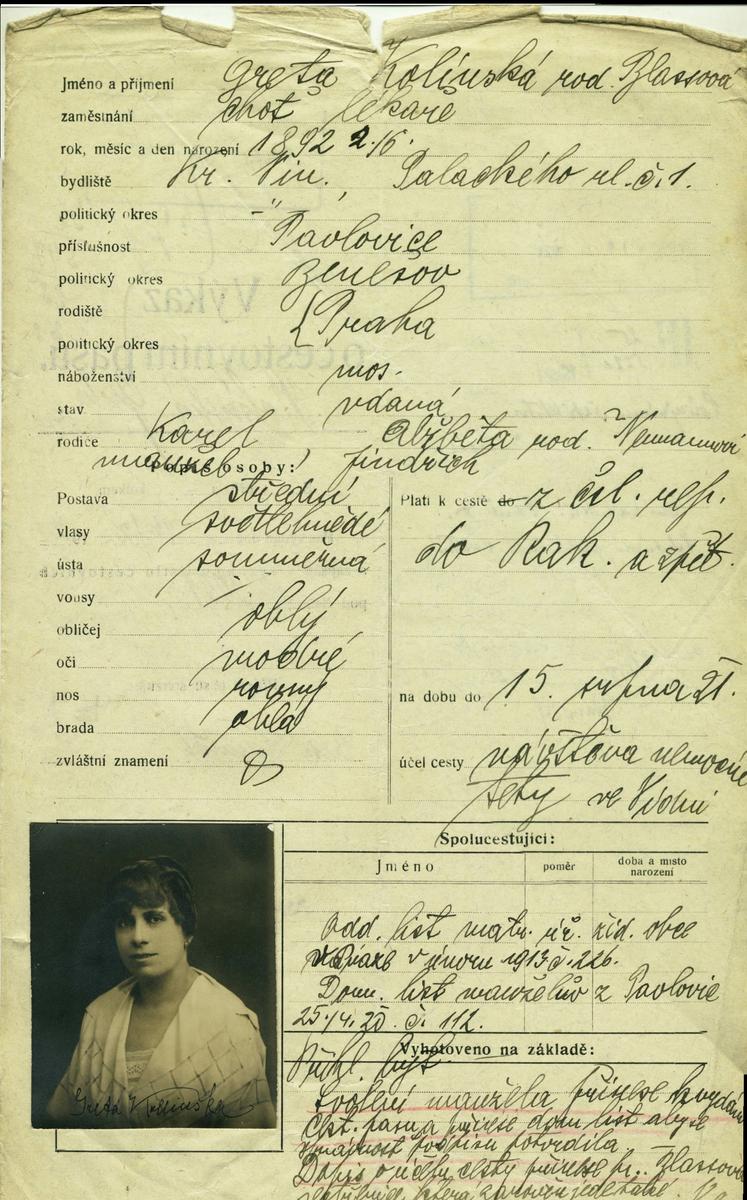 Jméno a příjmení Greta Kolínská roz. Glassová
zaměstnání choť lékaře
rok, měsíc a den narození 1892 2./6.
bydliště Kr. Vin., Palackého ul. č. 1.
politický okres -"-
příslušnost Pavlovice
politický okres Benešov
rodiště Praha
politický okres
náboženství mos.
stav vdaná
rodiče Karel Alžběta roz. Neumannová
manžel Jindřich
Popis osoby:
Postava střední
vlasy světlehnědé
ústa souměrná
vousy
obličej oblý
oči modré
nos rovný
brada oblá
zvláštní znamení
Platí k cestě do z čsl. rep.
do Rak. a zpět.
na dobu do 15. srpna 21.
účel cesty návštěva nemocné
tety ve Vídni
Spolucestující:
Jméno poměr doba a místo narození
Odd. list matr. úř. žid. obce
v Praze v únoru 1913 č. 226.
Dom. list manželův z Pavlovic
25./4. 20. č. 112.
Vyhotoveno na základě:
Svolení manžela přinese k vydání
přinese dom. list aby se
podpisu potvrdila
Greta Kolinska